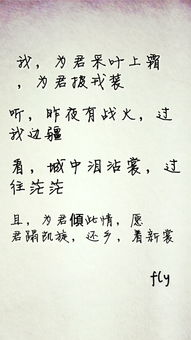 我，为君采叶上霜
，为君披戎装
听，昨夜有战火，过
我边疆
看，城中泪沾裳，过
往茫茫
且，为君倾此情，愿
君踏凯旋，还乡，着新裳
fly